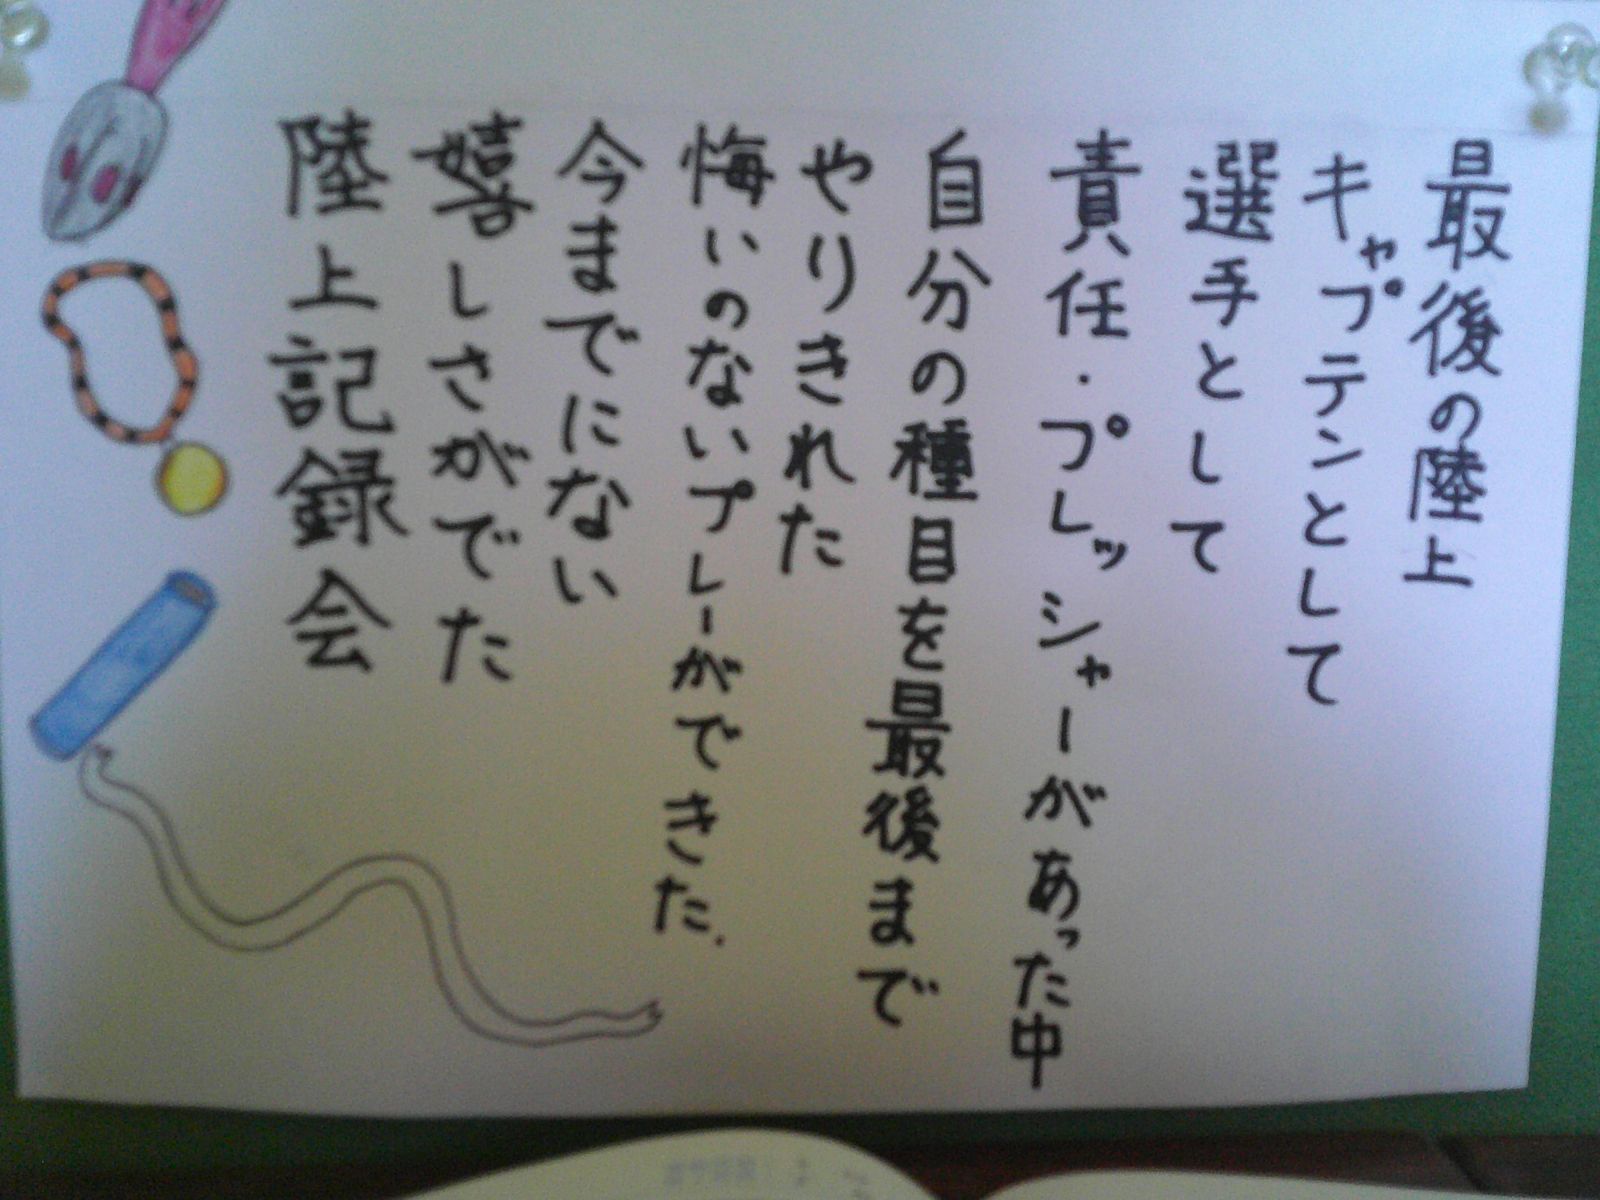 最後の陸上
キャプテンとして
選手として
責任・プレッシャーがあった中
自分の種目を最後まで
やりきれた
悔いのないプレーができた.
今までにない
嬉しさがでた
陸上記録会